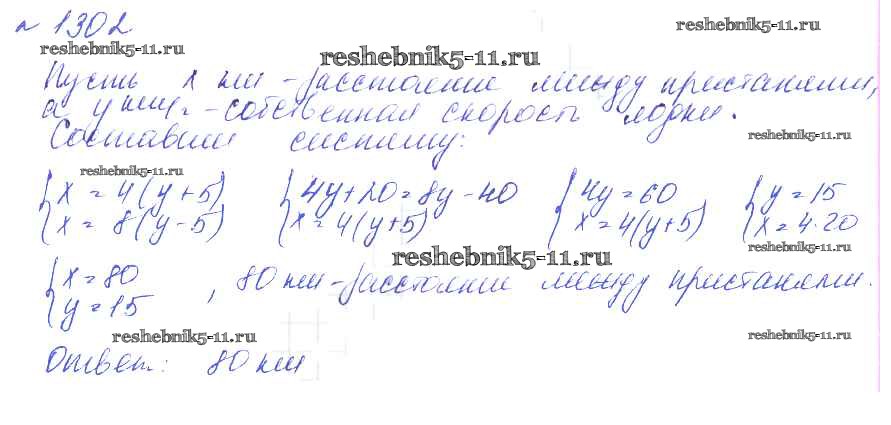 № 1302
reshebnik5-11.ru
reshebnik5-11.ru
reshebnik5-11.ru
Пусть x км - расстояние между пристанями,
а y км/ч - собственная скорость лодки.
reshebnik5-11.ru
Составим систему:
reshebnik5-11.ru
{ x = 4(y+5) { 4y+20=8y-40 { 4y=60 { y=15
{ x = 8(y-5) { x=4(y+5) { x=4(y+5) { x=4·20
reshebnik5-11.ru
reshebnik5-11.ru
{ x=80
{ y=15 , 80 км - расстояние между пристанями.
reshebnik5-11.ru
reshebnik5-11.ru
Ответ: 80 км